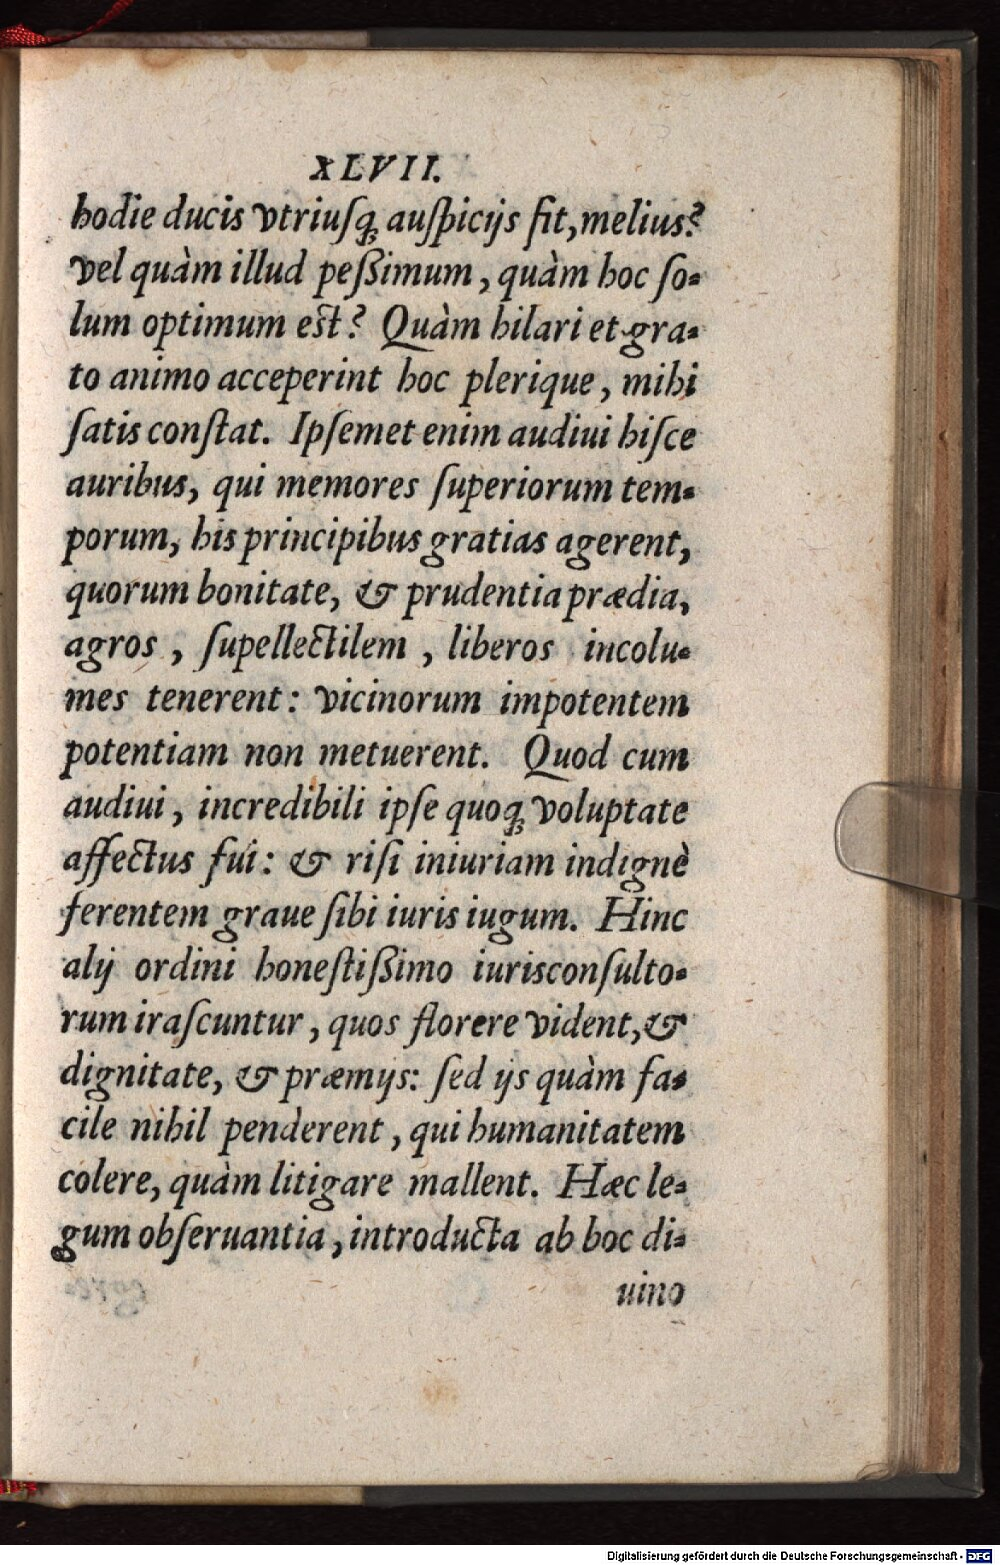 XLVII.
hodie ducis vtriuſqꝫ auſpicijs fit, melius?
vel quàm illud peßimum, quàm hoc ſo-
lum optimum est? Quàm hilari et gra-
to animo acceperint hoc plerique, mihi
ſatis conſtat. Ipſemet enim audiui hiſce
auribus, qui memores ſuperiorum tem-
porum, his principibus gratias agerent,
quorum bonitate, & prudentia prædia,
agros, ſupellectilem, liberos incolu-
mes tenerent: vicinorum impotentem
potentiam non metuerent. Quod cum
audiui, incredibili ipſe quoqꝫ voluptate
affectus fui: & riſi iniuriam indignè
ferentem graue ſibi iuris iugum. Hinc
alij ordini honeſtißimo iurisconſulto-
rum iraſcuntur, quos florere vident, &
dignitate, & præmijs: ſed ijs quàm fa-
cile nihil penderent, qui humanitatem
colere, quàm litigare mallent. Hæc le-
gum obſeruantia, introducta ab hoc di-
uino
Digitalisierung gefördert durch die Deutsche Forschungsgemeinschaft - DFG